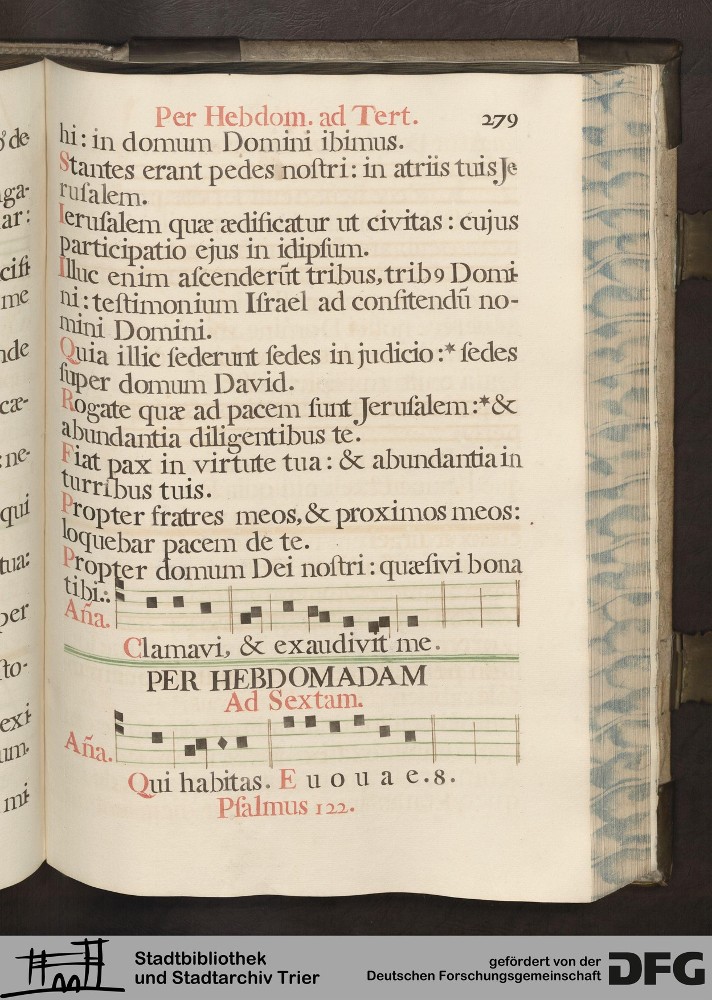 Per Hebdom. ad Tert. 279
hi: in domum Domini ibimus.
Stantes erant pedes noſtri: in atriis tuis Je
ruſalem.
Ieruſalem quæ ædificatur ut civitas: cujus
participatio ejus in idipſum.
Illuc enim aſcenderūt tribus, trib9 Domi-
ni: teſtimonium Iſrael ad confitendū no-
mini Domini.
Quia illic ſederunt ſedes in judicio:* ſedes
ſuper domum David.
Rogate quæ ad pacem ſunt Jeruſalem:* &
abundantia diligentibus te.
Fiat pax in virtute tua: & abundantia in
turribus tuis.
Propter fratres meos, & proximos meos:
loquebar pacem de te.
Propter domum Dei noſtri: quæſivi bona
tibi.:
Aña.
Clamavi, & exaudivit me.
PER HEBDOMADAM
Ad Sextam.
Aña.
Qui habitas. E u o u a e. 8.
Pſalmus 122.
de
ga-
ar:
cifi
me
nde
cæ-
ne-
qui
tua:
per
ſto-
exi
um.
mi
Stadtbibliothek
und Stadtarchiv Trier
gefördert von der
Deutschen Forschungsgemeinschaft
DFG